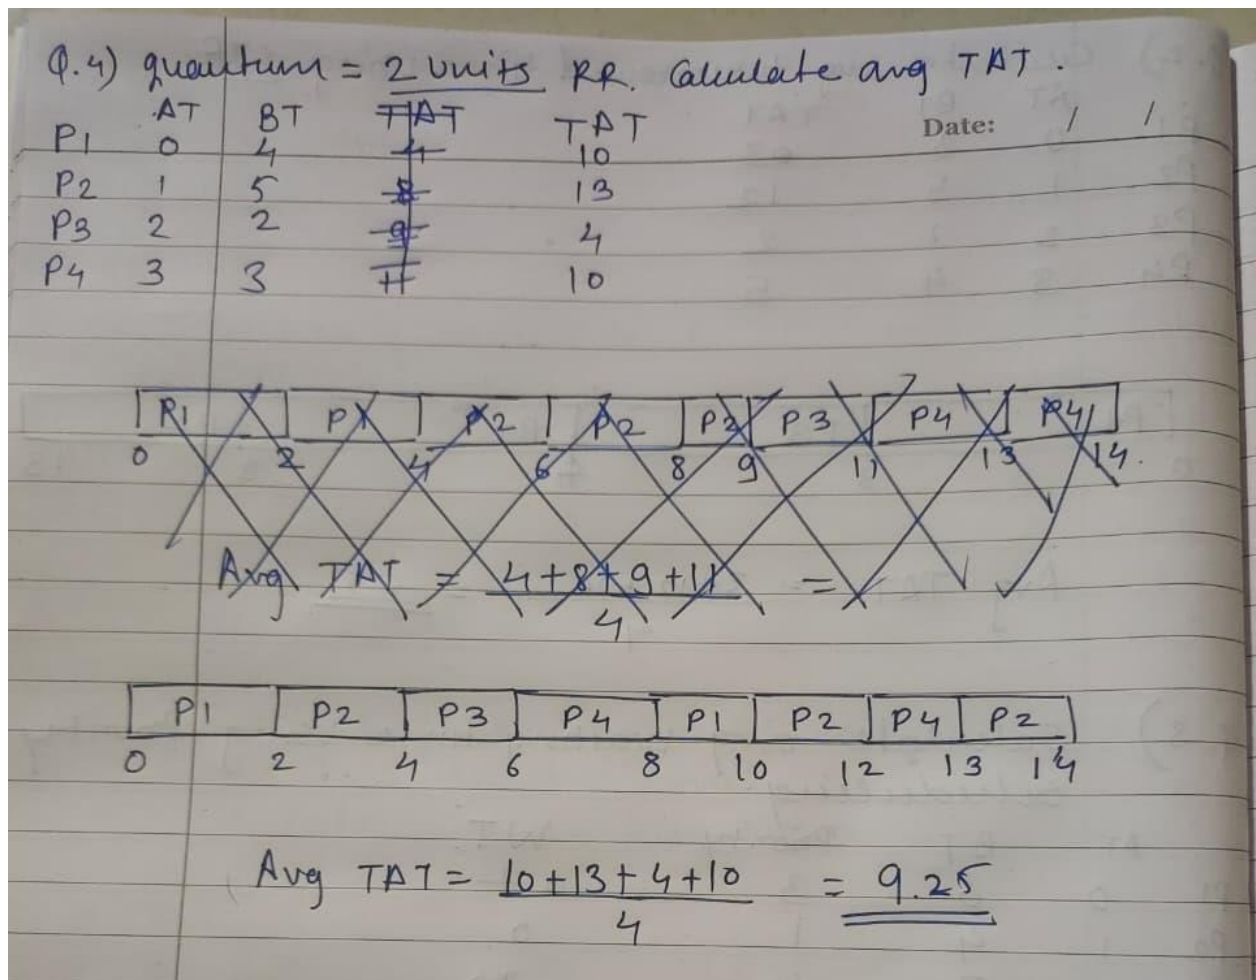 Q.4) quantum = 2 units RR. Calculate avg TAT.
AT BT TAT TAT Date: / /
P1 0 4 4 10
P2 1 5 8 13
P3 2 2 9 4
P4 3 3 11 10
P1 P1 P2 P2 P2 P3 P4 P4
0 2 4 6 8 9 11 13 14.
Avg TAT = 4+8+9+11 =
4
P1 P2 P3 P4 P1 P2 P4 P2
0 2 4 6 8 10 12 13 14
Avg TAT = 10+13+4+10 = 9.25
4